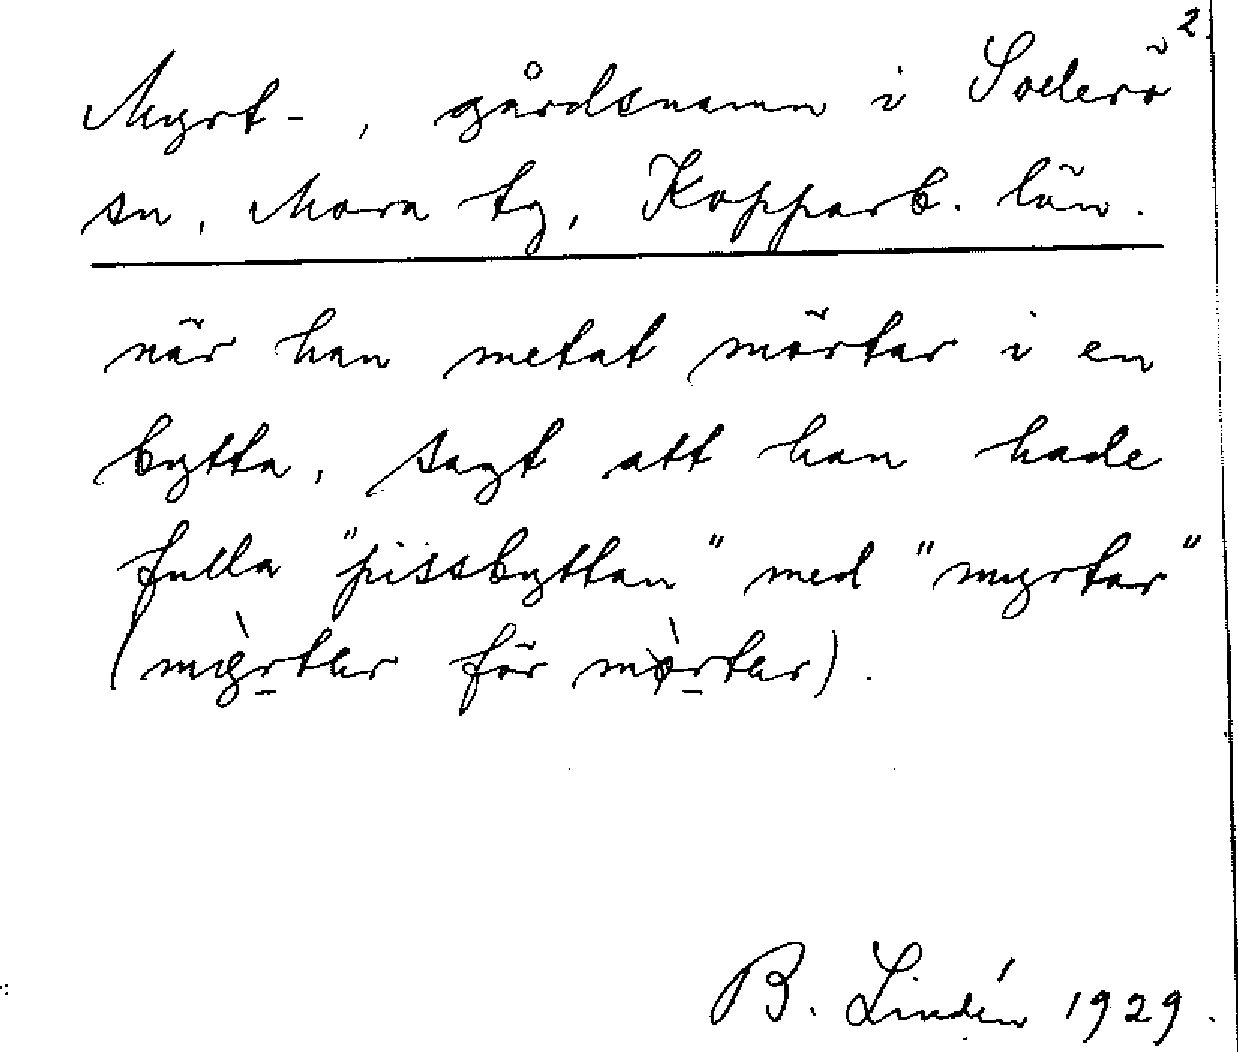 2.
Myrt-, gårdsnamn i Soderö
sn, Mora tg, Kopparb. län.
när han metat mörtar i en
bytta, sagt att han hade
fulla "pissbyttan" med "myrtar"
för
B. Lindén 1929.